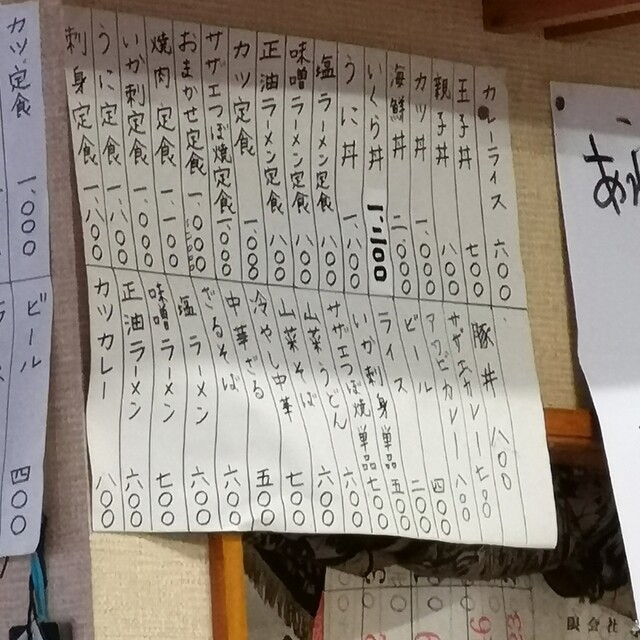 あ
カレーライス 六〇〇
玉子丼 七〇〇
親子丼 八〇〇
カツ丼 一、〇〇〇
海鮮丼 二、〇〇〇
いくら丼
うに丼 一、八〇〇
塩ラーメン定食 八〇〇
味噌ラーメン定食 八〇〇
正油ラーメン定食 八〇〇
カツ定食 一、〇〇〇
サザエつぼ焼定食 一、〇〇〇
おまかせ定食 一、〇〇〇
焼肉定食 一、一〇〇
いか刺定食 一、〇〇〇
うに定食 一、八〇〇
刺身定食 一、八〇〇
豚丼 八〇〇
サザエカレー 七〇〇
アワビカレー 八〇〇
ビール 四〇〇
ライス 二〇〇
いか刺身単品 五〇〇
サザエつぼ焼単品 七〇〇
山菜うどん 六〇〇
山菜そば 六〇〇
冷やし中華 七〇〇
中華ざる 五〇〇
ざるそば 六〇〇
塩ラーメン 六〇〇
味噌ラーメン 七〇〇
正油ラーメン 六〇〇
カツカレー 八〇〇
カツ定食 一、〇〇〇
ビール 四〇〇
限会社